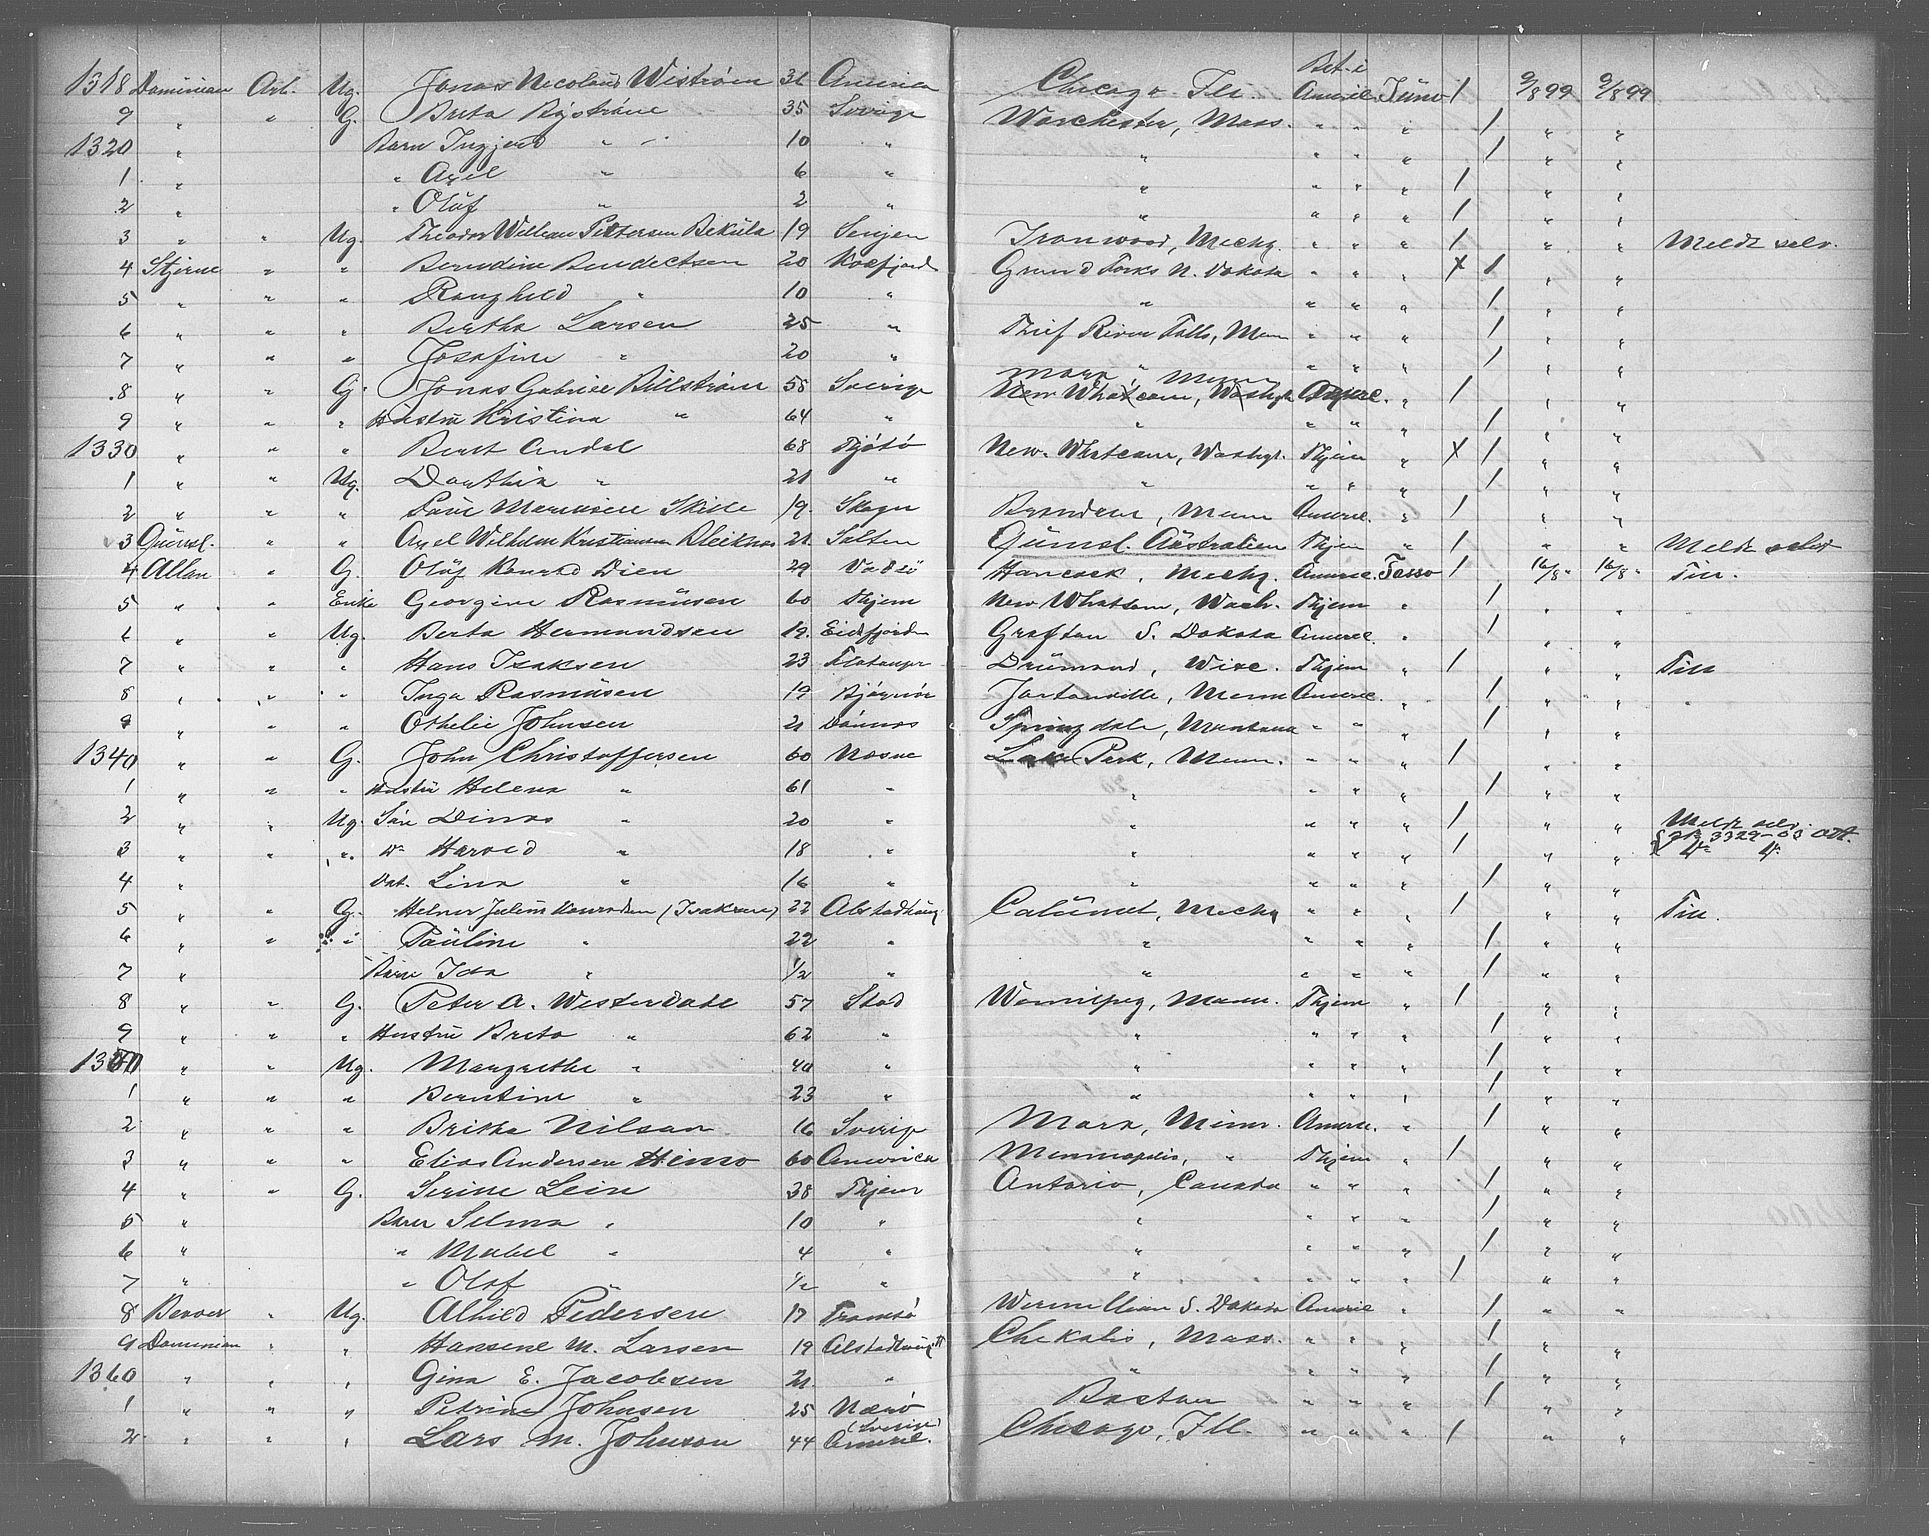 1318 Dominion Arb. Ug. Jonas Nicolaus Wiström 31 America Chicago Ill. Bet. i Americ. Juno / 9/8 99 9/8 99
9 " " G. Brita Byström 35 Sverige Worchester, Mass. " " " / " "
1320 " Barn Ingjerd " 10 " " " " " / " "
1 " " Axel " 6 " " " " " / " "
2 " " Oluf " 2 " " " " " / " "
3 " " Ug. Theodor William Pettersen Bekula 19 Senjen Ironwood, Michg. " " " / " " Meldt selv.
4 Stjerne " " Berndine Bendectsen 20 Grand Forks N. Dakota " " " X / " "
5 " " " Ranghild " 10 " " " " " / " "
6 " " " Bertha Larsen 25 " Thief River Falls, Minn " " " / " "
7 " " " Josefine " 20 " " " " " / " "
8 " " G. Jonas Gabriel Billström 58 Sverige Mora, Minn New Whatcom, Washgt. Americ. " / " "
9 " " " Hustru Kristina " 64 " " " " " / " "
1330 " " " Berit Andal 68 Tjötö New Whatcom, Washgt. Thjem " X / " "
1 " " Ug. Dorthea " 21 " " " " " / " "
2 " " " Marensen 19 Minn Americ. " / " "
3 Queensl. " " Axel Wilhelm Kristiansen Bleiknes 21 Salten Queensl. Australien Thjem " / " " Meldt selv
4 Allan " G. Oluf Konrad Dien 29 Vadsö Hancock, Michg. Americ. Tasso / 16/8 " 16/8 " Till.
5 " " Enke Georgine Rasmussen 60 Thjem New Whatcom, Wash. Thjem " / " "
6 " " Ug. Berta Hermandsen 19 Eidsfjorden Grafton S. Dakota Americ. " / " "
7 " " " Hans Isaksen 23 Drumond, Wisc. Thjem " / " " Till
8 " " " Inga Rasmussen 19 Minn Americ. " / " "
9 " " " Othelie Johnsen 21 Dönnes Springdale, Montana " " " / " "
1340 " " G. John Christoffersen 60 Næsne Lake Park, Minn. " " " / " "
1 " " " Hustru Helena " 61 " " " " " / " "
2 " " Ug. Sön Dinas " 20 " " " " " / " " Meldt selv
3 " " " do Harold " 18 " " " " " / " " 3329-03 do do
4 " Dat. Lina " 16 " " " " " / " "
5 " " G. Helner Julius Konradsen (Isaksen) 22 Alstadhaug Calumet, Michg " " " / " " Till.
6 " " " Pauline " 22 " " " " " / " "
7 " Barn Ida " 1/2 " " " " " / " "
8 " " G. Peter A. Westerdale 57 Stod Winnipeg, Mann. Thjem " / " "
9 " " " Hustru Breta " 62 " " " " " / " "
1350 " " Ug. Margrethe " 40 " " " " " / " "
1 " " " Berntine " 23 " " " " " / " "
2 " " " Britha Nilson 16 Sverige Mora, Minn. Americ. " / " "
3 " " " Elias Andersen Hemo 60 America Minneapolis, " Thjem " / " "
4 " " G. Serine Lein 38 Thjem Antario, Canada " " " / " "
5 " Barn Selma " 10 " " " " " / " "
6 " " Mabel " 4 " " " " " / " "
7 " " Olaf 1/2 " " " " " / " "
8 " Ug. Alhild Pedersen 17 Tromsö Wermillion S. Dakota Americ " / " "
9 Dominion " " Hansene M. Larsen 19 Alstadhaug Chekalis, Mass. " " " / " "
1360 " " " Gina E. Jacobsen 21. " " " " " / " "
1 " " " Petrine Johnsen 25 Nærö Boston " " " / " "
2 " " " Lars M. Johnson 44 (Sverige) Americ. Chicago, Ill. " " " / " "